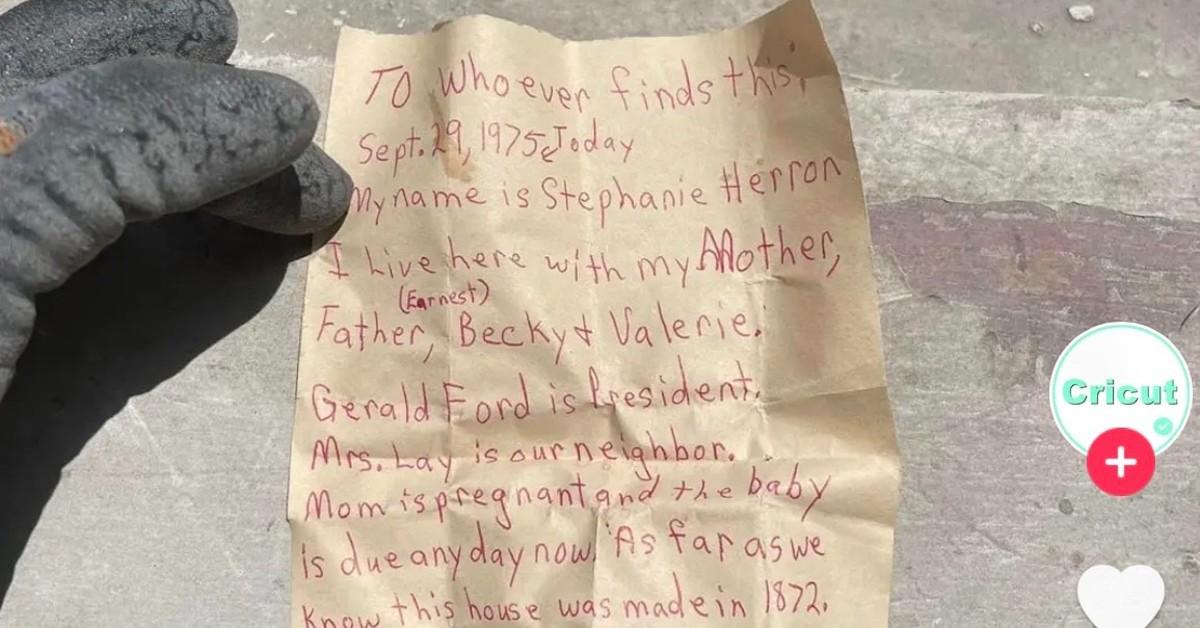 TO Whoever finds this,
Sept. 29, 1975 Today
My name is Stephanie Herron
I Live here with my Mother,
(Earnest)
Father, Becky & Valerie.
Gerald Ford is President.
Mrs. Lay is our neighbor.
Mom is pregnant and the baby
is due any day now. As far as we
know this house was made in 1872.
Cricut